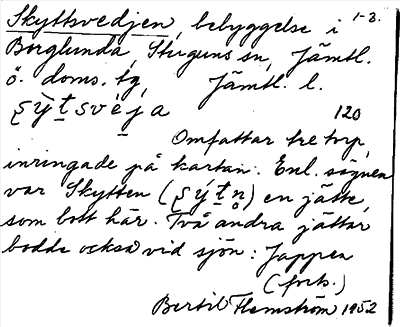 Skyttsvedjen, bebyggelse i 1-3.
Borglunda, Stuguns sn, Jämtl.
ö. doms. tg, Jämtl. l.
120
Omfattar tre torp,
inringade på kartan. Enl. sägnen
var Skytten en jätte,
som bott här. Två andra jättar
bodde också vid sjön: Jappen
(forts.)
Bertil Flemström 1952